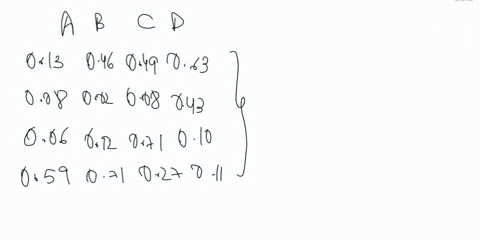 A B C D
0.13 0.46 0.49 0.63
0.08 0.02 0.08 0.43
0.06 0.12 0.71 0.10
0.59 0.71 0.27 0.11